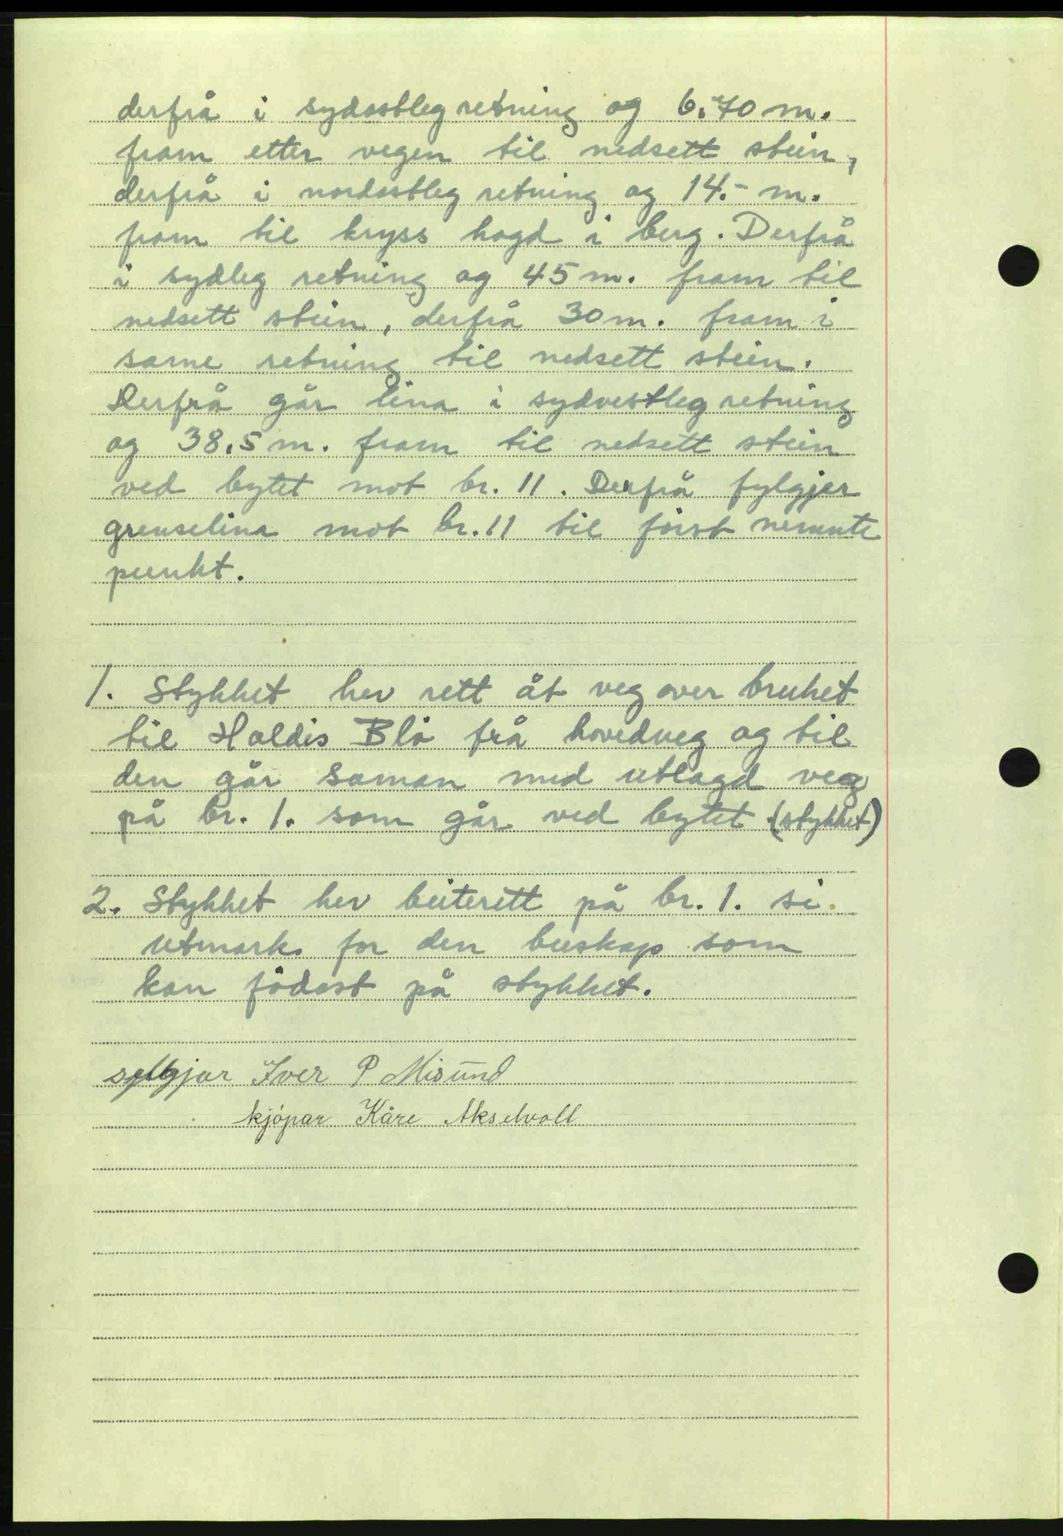 derfrå i sydostleg retning og 6.70 m.
fram etter vegen til nedsett stein,
derfrå i nordostleg retning og 14.- m.
fram til kryss hogd i berg. Derfrå
i sydleg retning og 45 m. fram til
nedsett stein, derfrå 30 m. fram i
same retning til nedsett stein.
Derfrå går lina i sydvestleg retning
og 38,5 m. fram til nedsett stein
ved bytet mot br. 11. Derfrå fylgjer
grenselina mot br. 11 til först nemnte
punkt.
1. Stykket hev rett åt veg over bruket
til Haldis Blö frå hovedveg og til
den går saman med utlagd veg
på br. 1. som går ved bytet (stykket)
2. Stykket hev beiterett på br. 1. si
utmark for den buskap som
kan födast på stykket.
seljar Iver P Misund
kjöpar Kåre Akselvoll